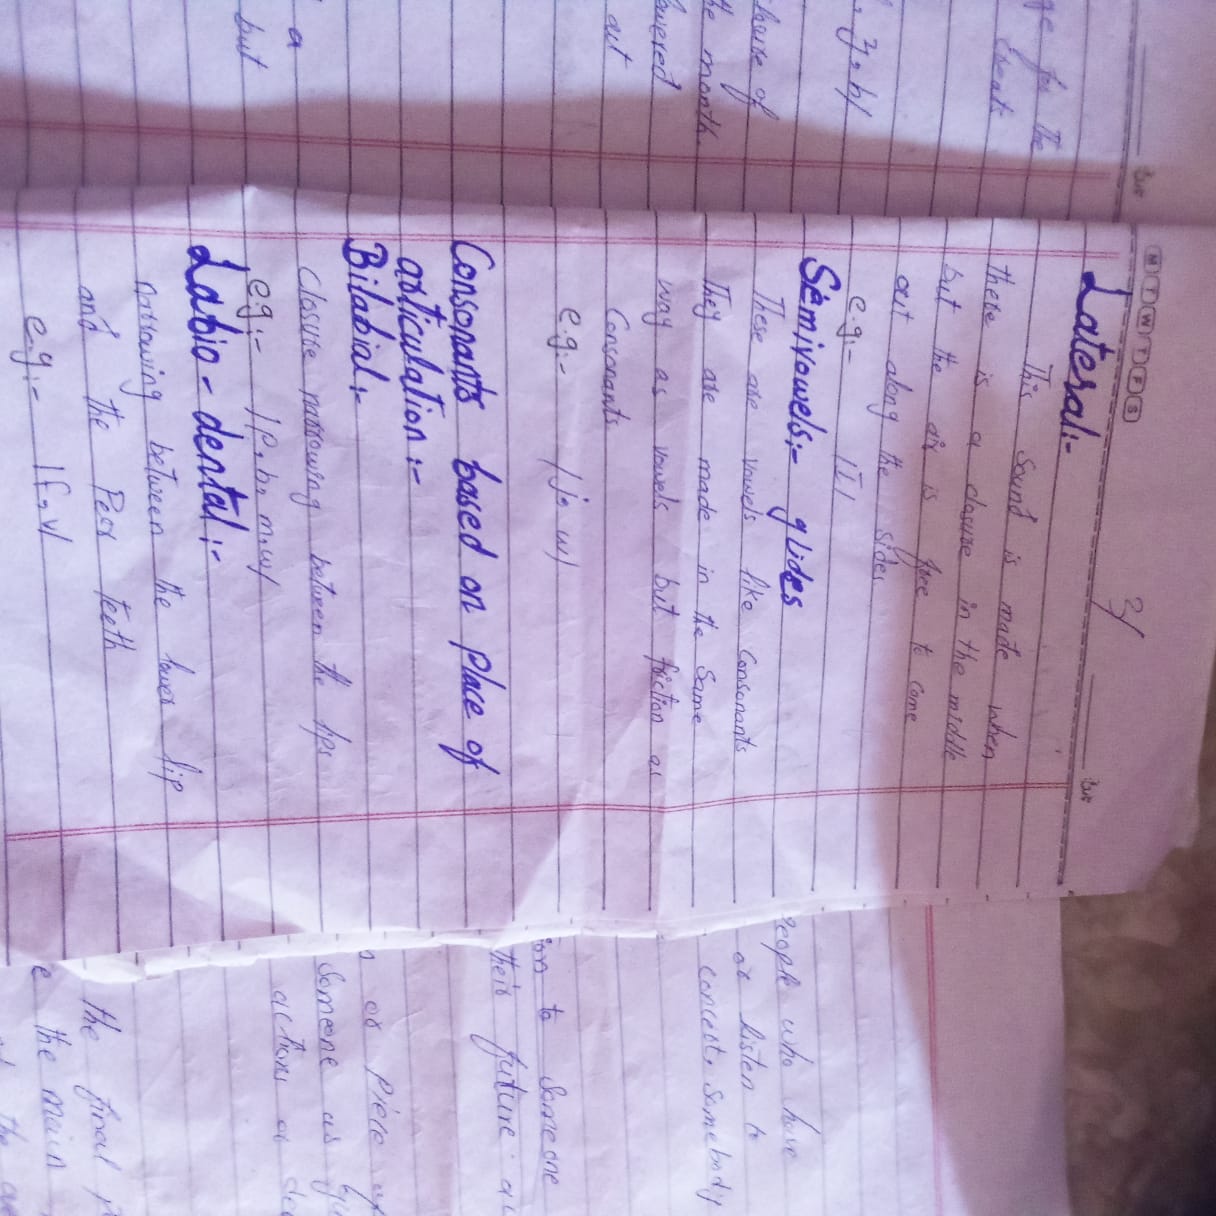 M T W T F S
3/
Lateral:-
This sound is made when
there is a closure in the middle
but the air is free to come
out along the sides
e.g:- /I/
Semivowels:- glides
These are vowels like consonants
They are made in the same
way as vowels but friction as
Consonants
e.g:- /j, w/
Consonants based on place of
articulation:-
Bilabial:-
Closure narrowing between the lips
e.g:- /p, b, m, w/
Labio-dental:-
Narrowing between the lower lip
and the Teeth
e.g:- /f, v/
ge for the
the month.
out
a
but
people who have
or listen to
concept, Somebody
to Someone
their future
or piece of
Someone as
actions
the final
the main